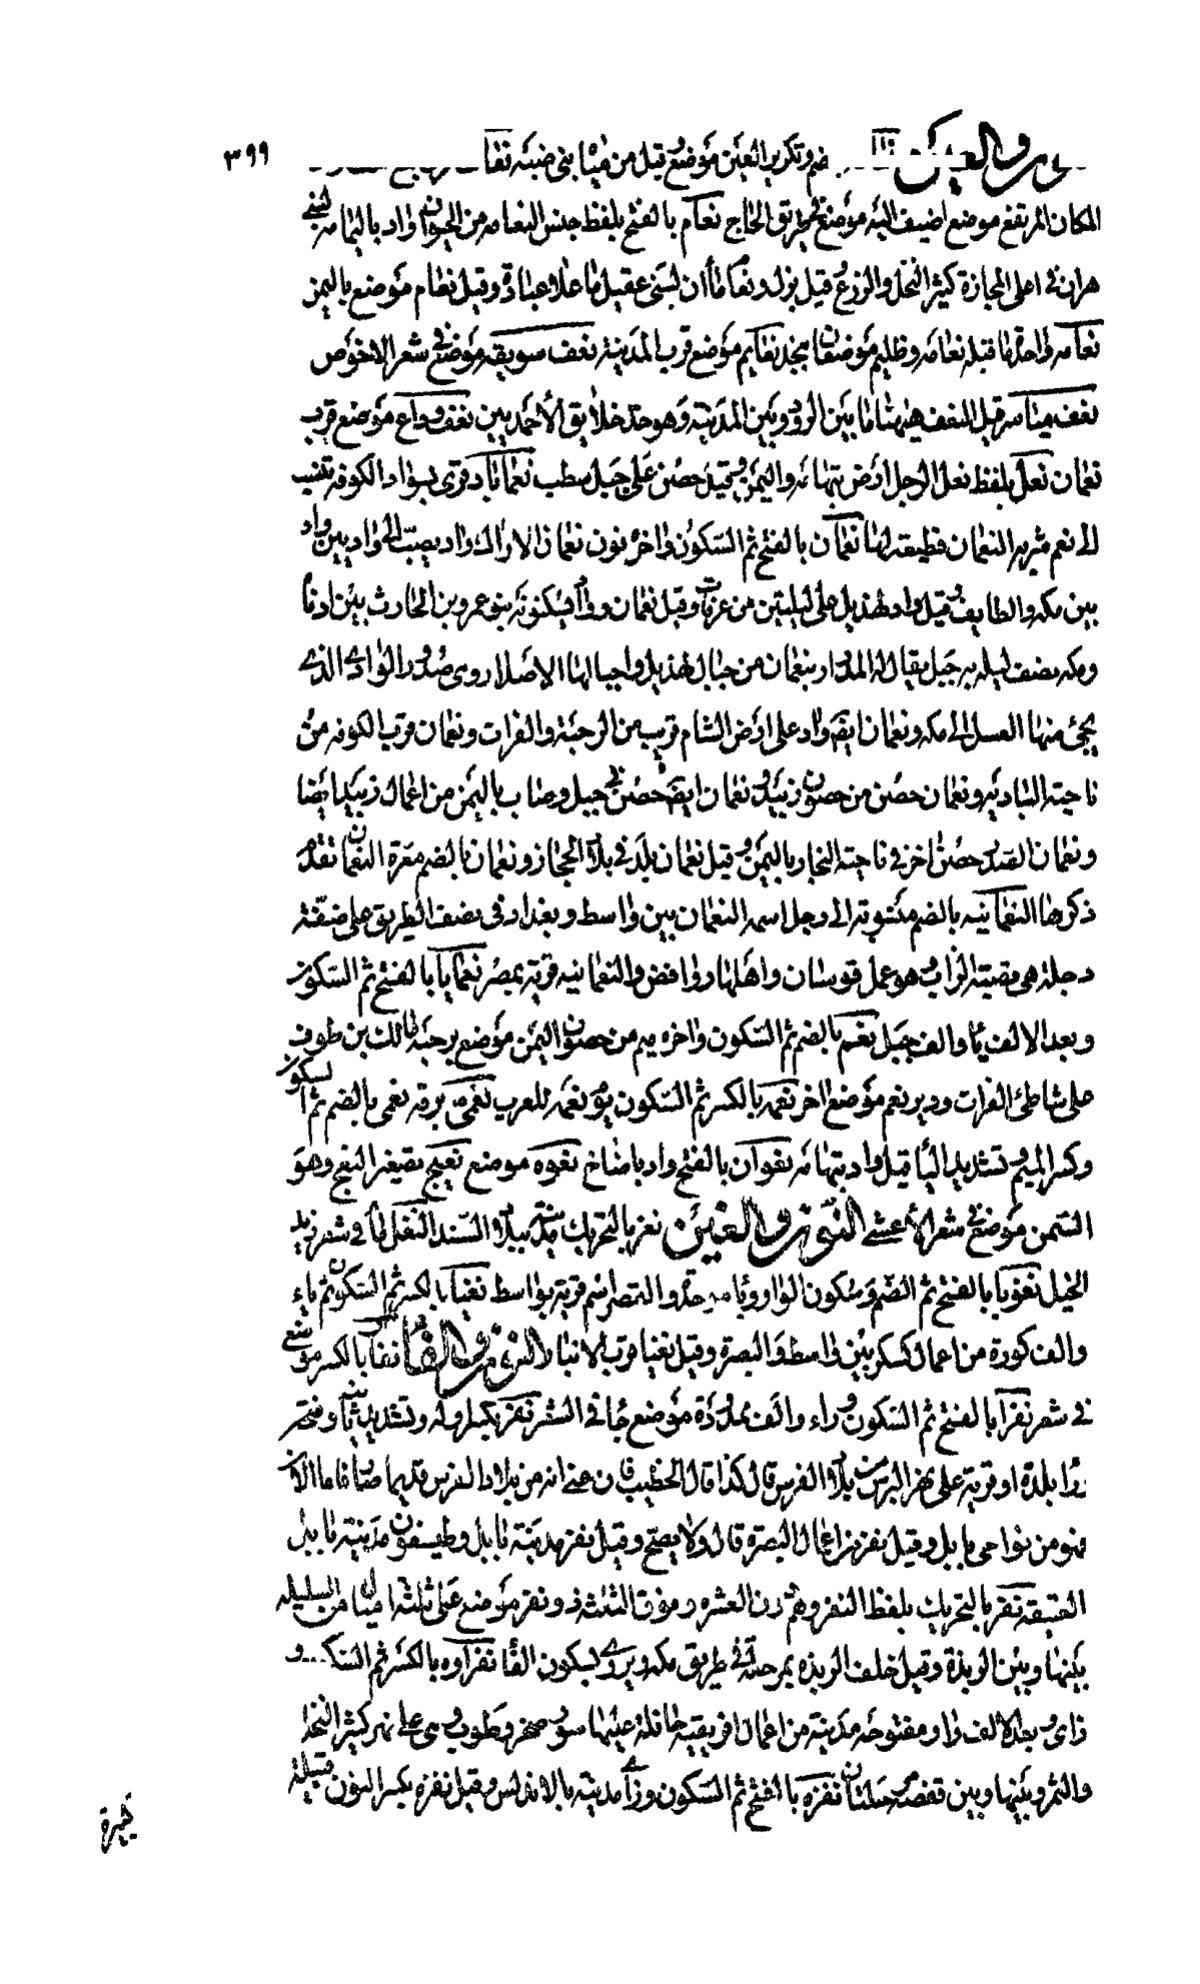 ٣٩٩
النون والعين بالضم وتكرير العين موضع قيل من مياه بني ضبه نعا
المكان المرتفع موضع اضيف اليه موضع بطريق الحاج نعام بالفتح بلفظ جنس النعامه من الحيوان واد باليمامه لبني
هزان في اعلى المجازة كثير النخل والزرع قيل برك ونعام ماآن لبني عقيل ما خلا عبادة وقيل نعام موضع باليمن
نعامه واحدة ما قبله نعامه وظليم موضعان بنجد نعايم موضع قرب المدينة نعف سويقه موضع في شعر الاحوص
نعف مياسر قيل النعف ههنا ما بين الروو وبين المدينة وهو حد خلايق الأحمديين نعف وداع موضع قرب
نعمان نعل بلفظ نعل الرجل ارض بتهامه واليمن وقيل حصن على جبل شطب نعماباد قرى بسواد الكوفه تنسب
الى نعم سرية النعمان قطيعه لها نعمان بالفتح ثم السكون واخره نون نعمان الاراك واد يصب الى واد بين واد
بين مكه والطايف وقيل واد لهذيل على ليلتين من عرفات وقيل نعمان واد يسكنونه بنو عمرو بن الحارث بين ادناه
ومكه نصف ليله به جبل يقال له المدارء بنعمان من جبال لهذيل واجبالها الاصدار وهي صدور الوادي الذي
يجئ منها العسل الى مكه ونعمان ايضا واد على ارض الشام قريب من الرحبة والفرات ونعمان قرب الكوفه من
ناحية الباديه ونعمان حصن من حصون زبيد ونعمان ايضا حصن في جبل وصاب باليمن من اعمال زبيد ايضا
ونعمان الصدر حصن اخر في ناحية النجاد باليمن وقيل نعمان بلد في بلاد الحجاز ونعمان بالضم معرة النعمان تقدم
ذكرها النعمانيه بالضم منسوبة الى رجل اسمه النعمان بين واسط وبغداد في نصف الطريق على ضفة
دجلة هي قصبة الزاب وهو عمل قوسان واهلها روافض والنعمانيه قرية بمصر نعمايا بالفتح ثم السكون
وبعد الالف يا والف جبل نعم بالضم ثم السكون واخره ميم من حصون اليمن موضع برحبة مالك بن طوق
على شاطئ الفرات ودير نعم موضع اخر نعمه بالكسر ثم السكون للعرب نعمى برقه نعمي بالضم ثم السكون
وكسر الميم وتشديد اليا قيل واد بتهامه نعوان بالفتح واد باضاخ نعوه موضع نعيج تصغير النعج وهو
السمن موضع في شعر الأعشى النون والغين نغر بالتحريك مدينة ببلاد السند النغل ما في شعر زيد
الخيل نغوبا بالفتح ثم الضم وسكون الواو وبا موحدة والقصر اسم قرية بواسط نغيا بالكسر ثم السكون ثم ياء
والف كورة من اعمال كسكر بين واسط والبصرة وقيل نغيا قرب الانبار النون والفاء نفا بالكسر موضع
في شعر نفرا بالفتح ثم السكون وراء والف ممدودة موضع جا في الشعر نفر بكسر اوله وتشديد ثانيه وفتحه
ورا بلدة او قرية على نهر النرس من بلاد الفرس قال كذا قال الخطيب فان عنى انه من بلاد الفرس قديما جاز فاما الان
فهو من نواحي بابل وقيل نفر من اعمال البصره قال ولا يصح وقيل نفر مدينة بابل وطيسفون مدينة بابل
العتيقه نفر بالتحريك بلفظ النفر وهم دون العشره وفوق الثلثه ذو نفر موضع على ثلثة اميال من السليله
بينها وبين الربذة وقيل خلف الربذه بمرحلة في طريق مكه ويروي بسكون الفا نفزاوه بالكسر ثم السكون
زاى وبعد الالف واو مفتوحه مدينة من اعمال افريقية حافلة عليها سور صخر وطوب وهي على نهر كثير النخل
والثمر وبينها وبين قفصه مرحلتان نفزه بالفتح ثم السكون وزاي مدينة بالاندلس وقيل نفزه بكسر النون قبيلة
كبيرة